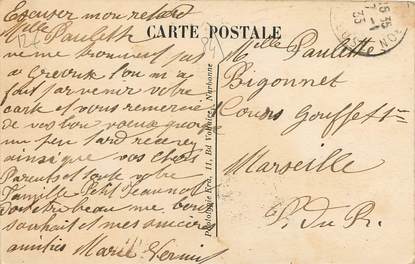 Excusez mon retard
Mlle Paulette
ne me trouvant pas
a Grevoux l'on m'a
fait parvenir votre
carte et vous remercie
de vos bon vœux quoique
un peu tard recevez
ainsi que vos chers
Parents et toute votre
Famille Petit Jeannot
doit être beau me bons
souhait et mes sincères
amitiés Marie
CARTE POSTALE
Mlle Paulette
Bigonnet
Cours Gouffet
Marseille
P. du R.
Phototypie Era, 11, Bd Voltaire, Narbonne